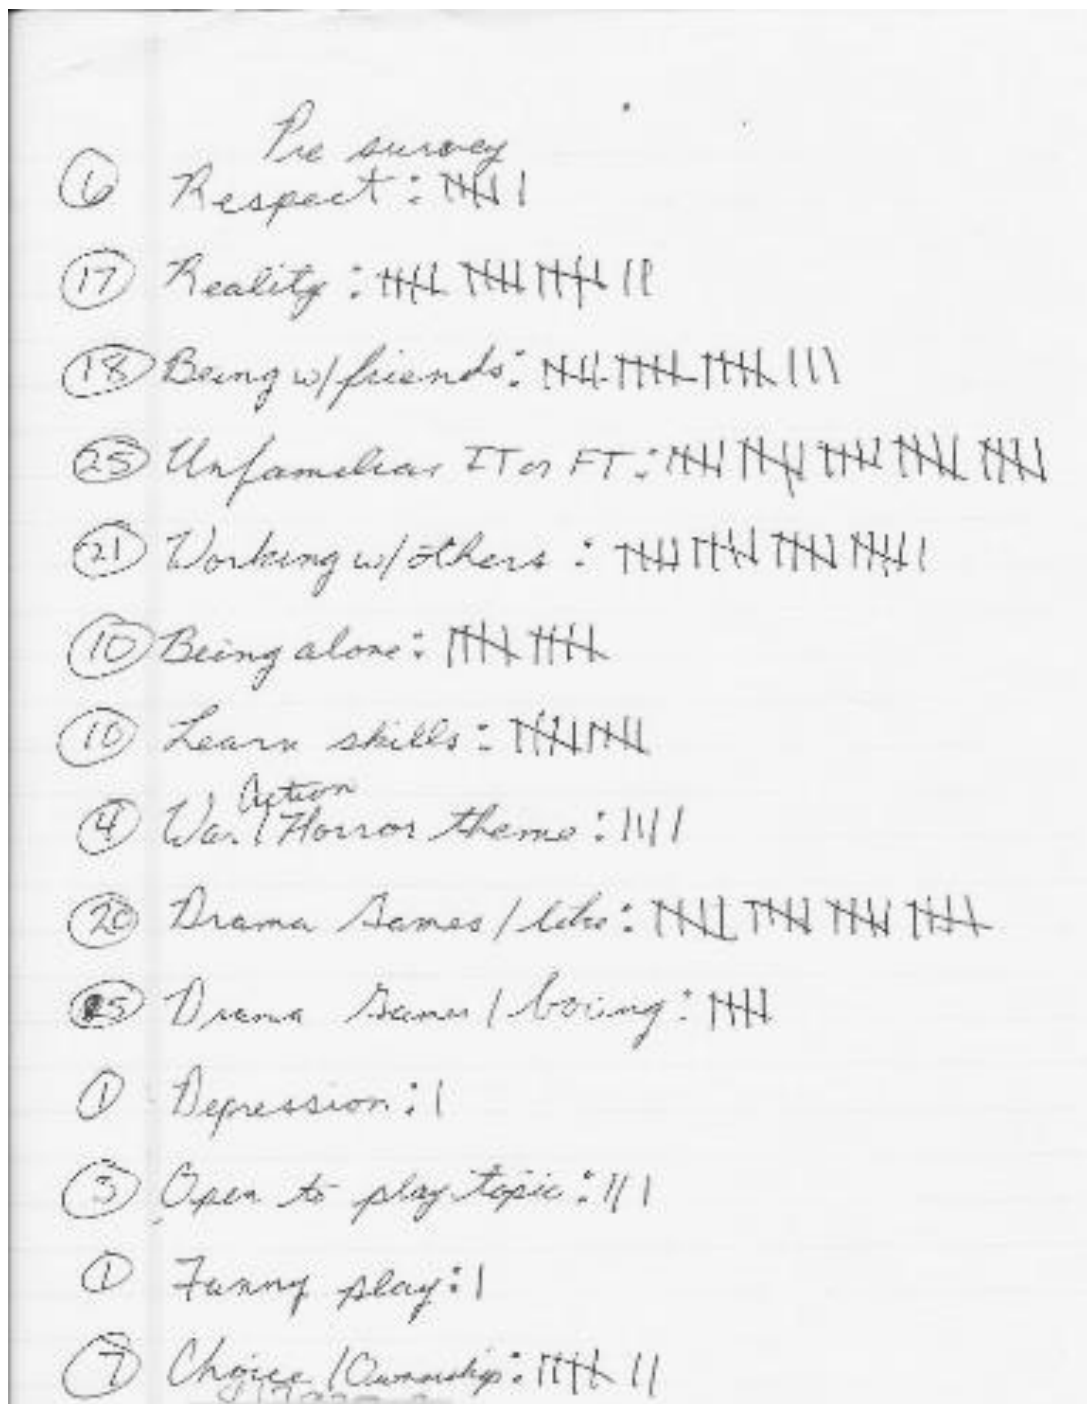 Pre survey
6 Respect: 𝍸 |
17 Reality: 𝍸 𝍸 𝍸 ||
18 Being w/friends: 𝍸 𝍸 𝍸 |||
25 Unfamiliar IT or FT: 𝍸 𝍸 𝍸 𝍸 𝍸
21 Working w/others: 𝍸 𝍸 𝍸 𝍸 |
10 Being alone: 𝍸 𝍸
10 Learn skills: 𝍸 𝍸
Action
4 War/Horror theme: ||||
20 Drama Games/like: 𝍸 𝍸 𝍸 𝍸
5 Drama Games/boring: 𝍸
1 Depression: |
3 Open to play topic: |||
1 Funny play: |
7 Choice/Ownership: 𝍸 ||